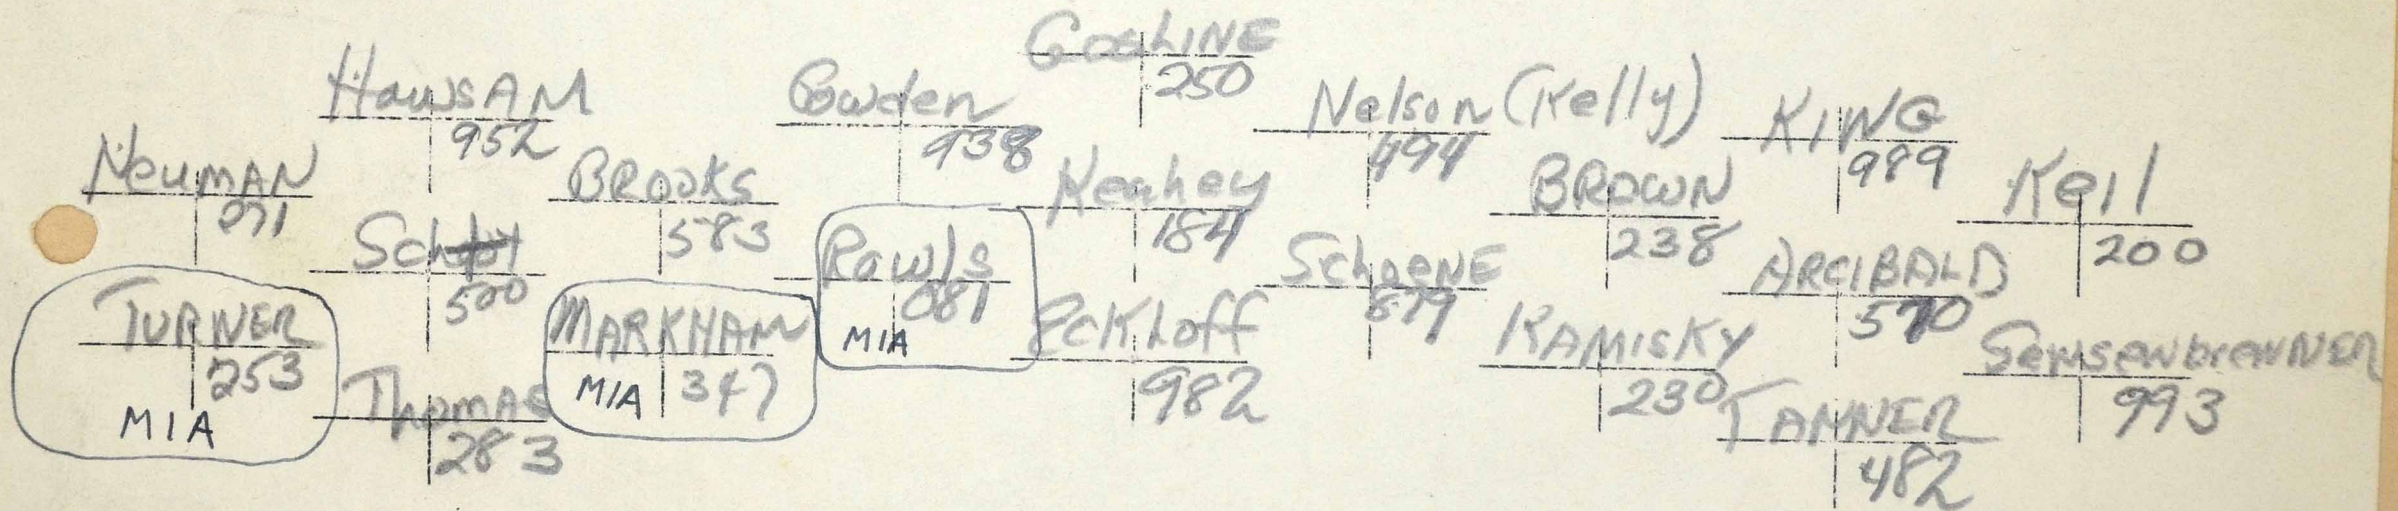 GosLINE
250
HawsAM
952
Bowden
938
Nelson (Kelly)
494
KING
989
NeuMAN
271
BROOKS
583
Keahey
184
BROWN
238
Keil
200
500
Rawls
081
MIA
SchoeNE
879
ARCIBALD
570
TURNER
253
MIA
MARKHAM
MIA 347
EcKhoff
982
KAMISKY
230
SensenbrenNER
993
Thomas
283
TANNER
482